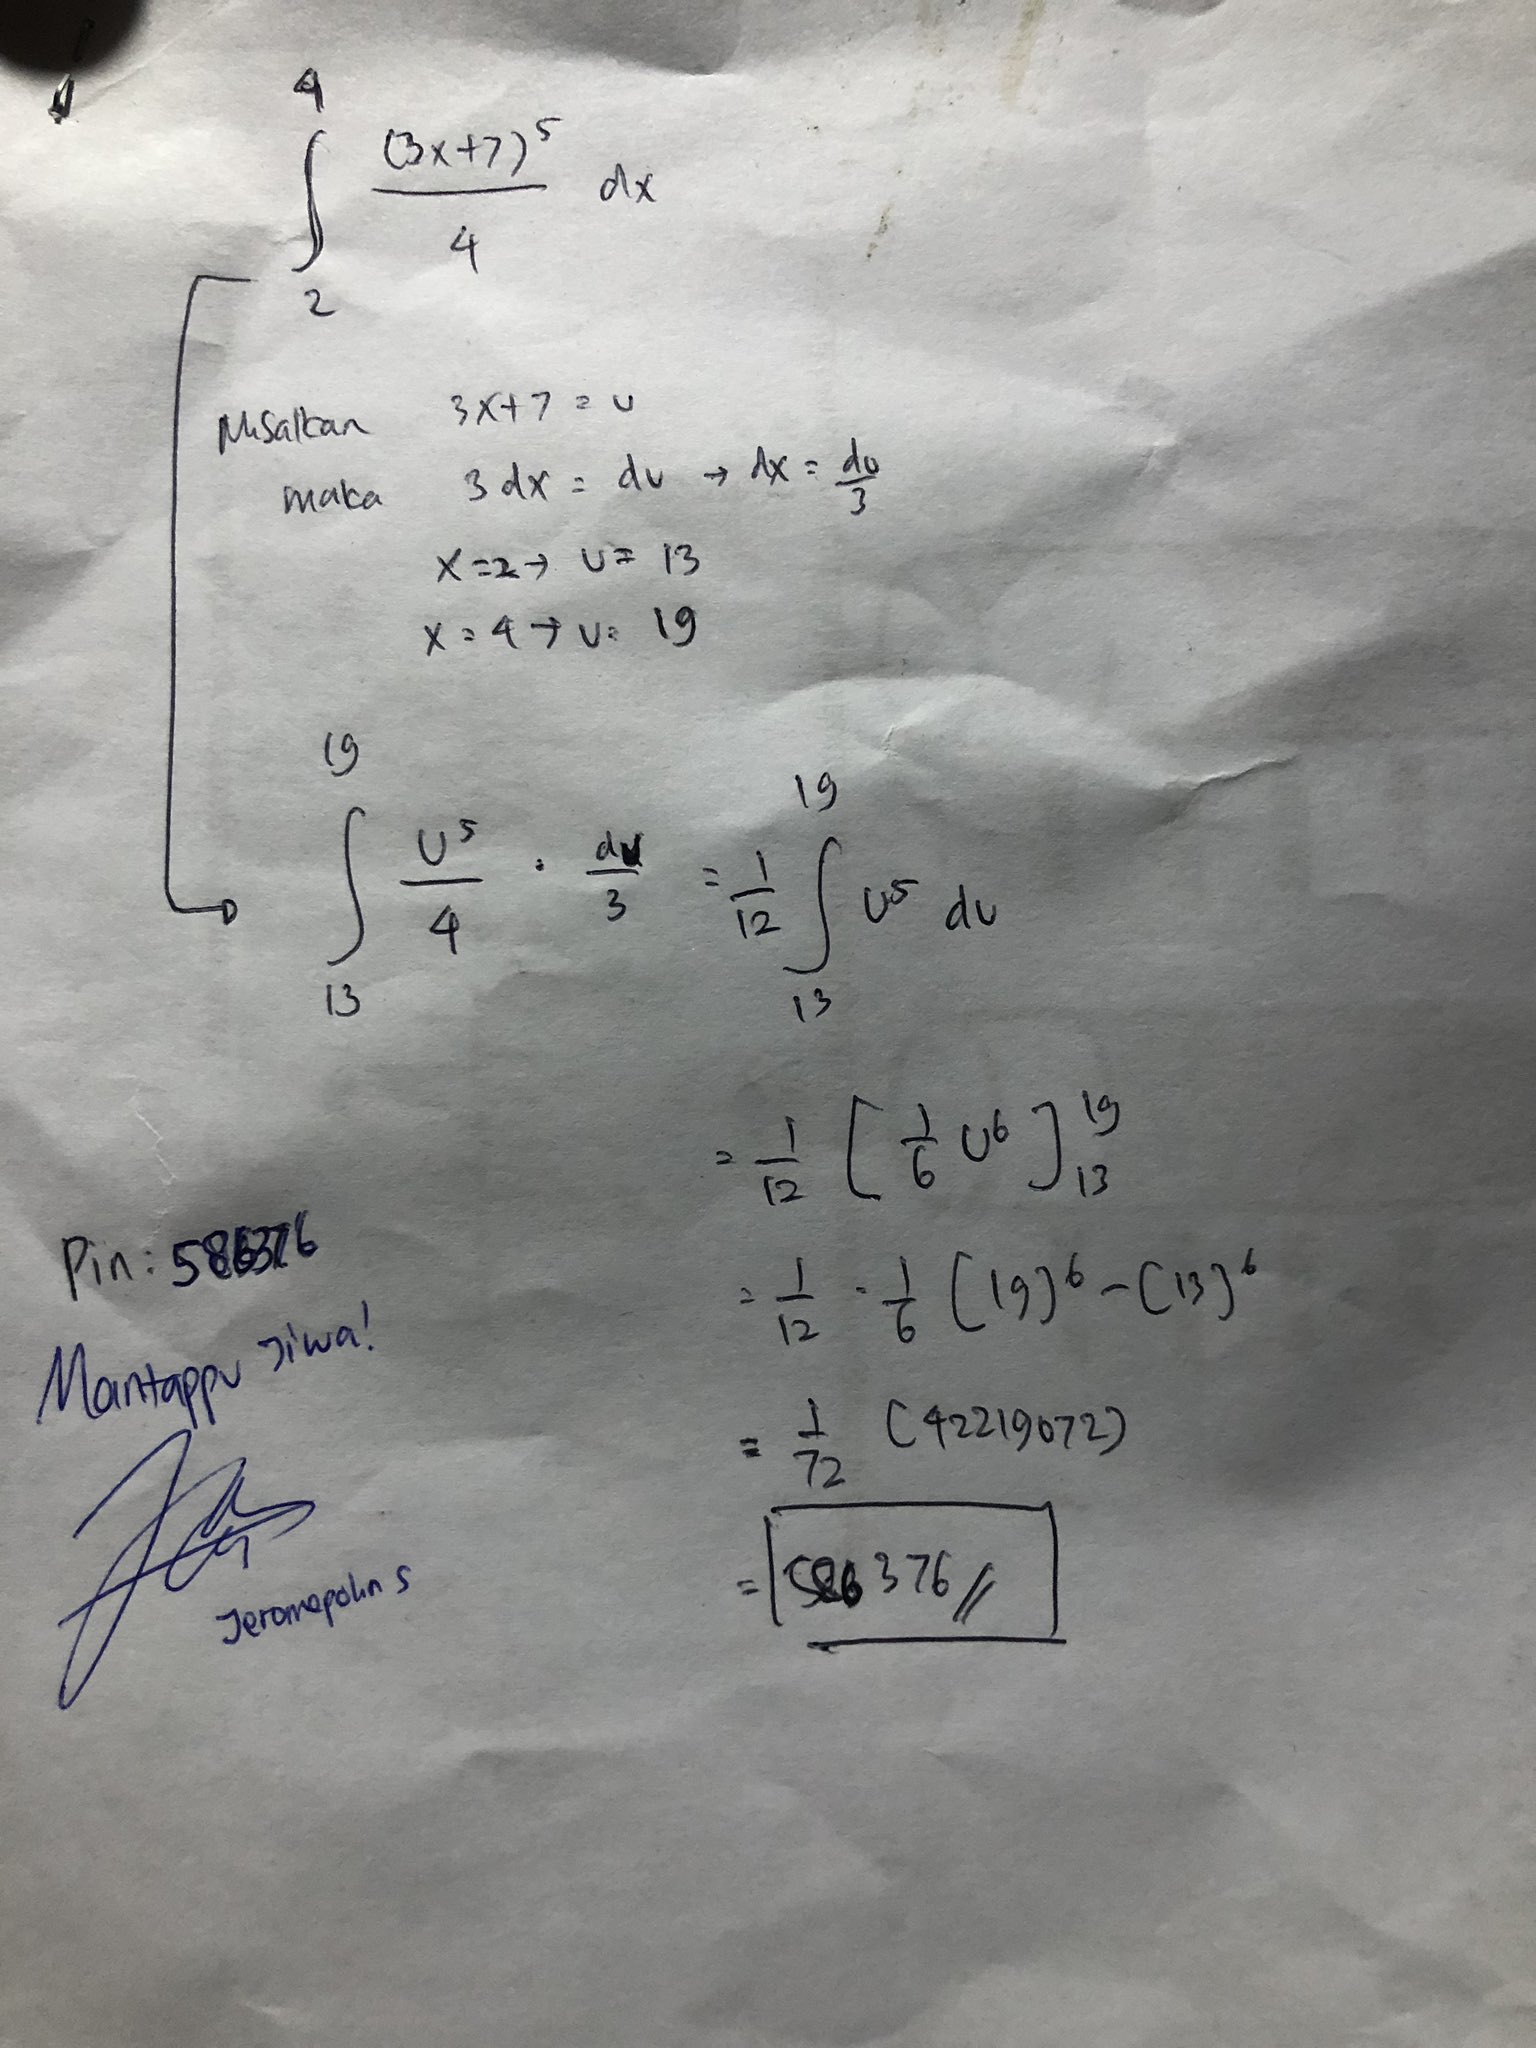 ∫₂⁴ (3x+7)⁵/4 dx
Misalkan 3x+7 = u
maka 3 dx = du → dx = du/3
x=2 → u = 13
x = 4 → u = 19
∫₁₃¹⁹ u⁵/4 · du/3 = 1/12 ∫₁₃¹⁹ u⁵ du
= 1/12 [1/6 u⁶]₁₃¹⁹
= 1/12 · 1/6 (19)⁶ - (13)⁶
= 1/72 (42219072)
= 586376
Pin: 586376
Mantappu Jiwa!
Jeromepolin S